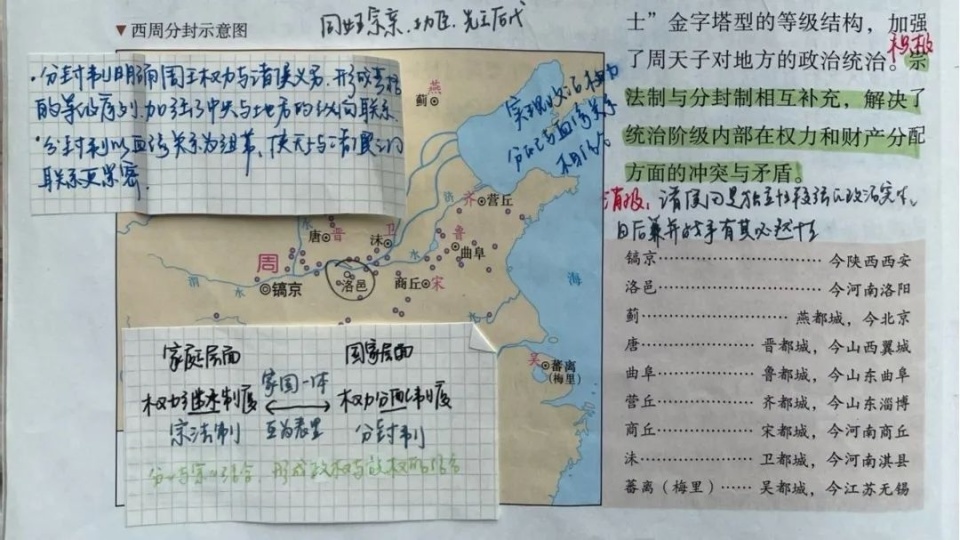 ▼西周分封示意图
同姓宗亲、功臣、先王后代
·分封制明确周王权力与诸侯义务，形成严格
的等级序列，加强了中央与地方的纵向联系.
·分封制以血缘关系为纽带，使天子与诸侯之间
联系更紧密.
燕
蓟
实现政治权力
分配与血缘关系
相结合
济
齐
营丘
唐
晋
卫
沫
鲁
曲阜
水
周
镐京
洛邑
商丘
宋
渭
水
海
吴
蕃离
(梅里)
家庭层面
国家层面
权力继承制度
家国一体
权力分配制度
宗法制
互为表里
分封制
士”金字塔型的等级结构，加强
了周天子对地方的政治统治。宗
积极
法制与分封制相互补充，解决了
统治阶级内部在权力和财产分配
方面的冲突与矛盾。
消极：诸侯国是独立性较强的政治实体，
日后兼并战争有其必然性
镐京……………………今陕西西安
洛邑……………………今河南洛阳
蓟……………………燕都城，今北京
唐………………晋都城，今山西翼城
曲阜……………鲁都城，今山东曲阜
营丘……………齐都城，今山东淄博
商丘……………宋都城，今河南商丘
沫………………卫都城，今河南淇县
蕃离（梅里）……吴都城，今江苏无锡